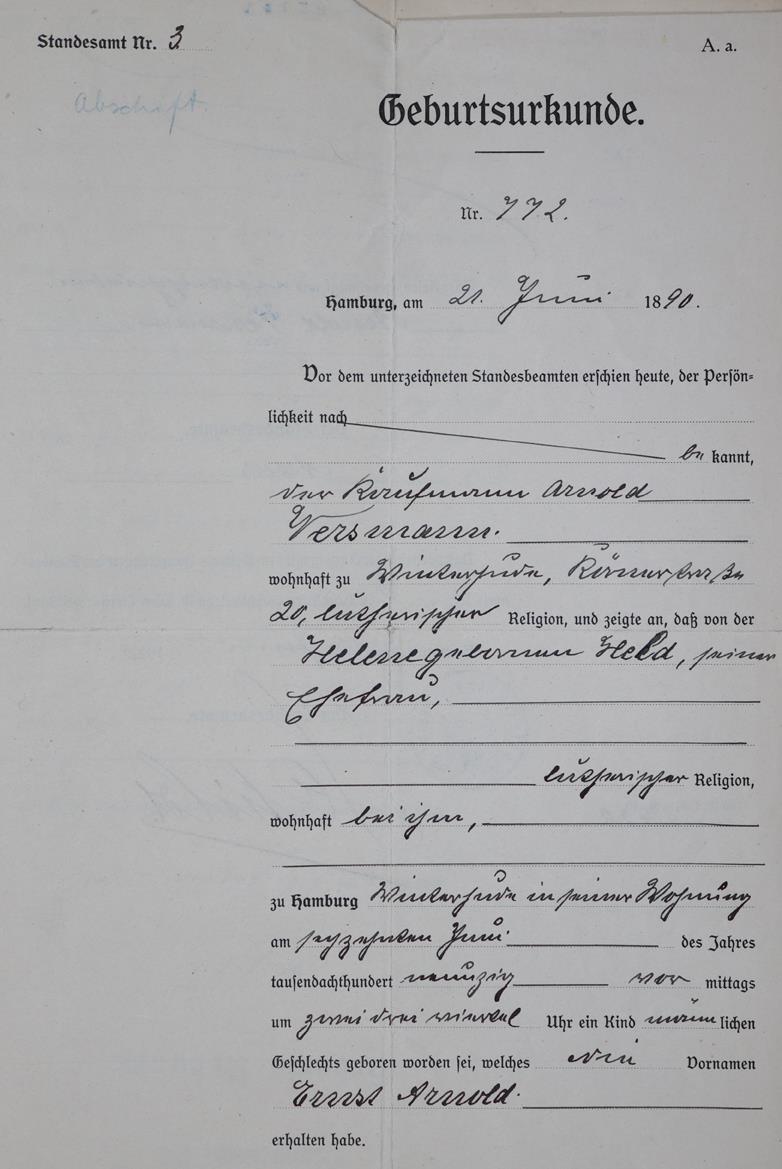 Standesamt Nr. 3. A. a.
Abschift.
Geburtsurkunde.
Nr. 772.
Hamburg, am 21. Juni 1890.
Vor dem unterzeichneten Standesbeamten erschien heute, der Persön-
lichkeit nach
be kannt,
der Kaufmann Arnold
Versmann.
wohnhaft zu Winterhude, Körnerstraße
20, lutherischer Religion, und zeigte an, daß von der
Helene gebornen Held, seiner
Ehefrau,
lutherischer Religion,
wohnhaft bei ihm,
zu Hamburg Winterhude in seiner Wohnung
am sechzehnten Juni des Jahres
tausendachthundert neunzig vor mittags
um zwei drei viertel Uhr ein Kind männ lichen
Geschlechts geboren worden sei, welches die Vornamen
Ernst Arnold.
erhalten habe.